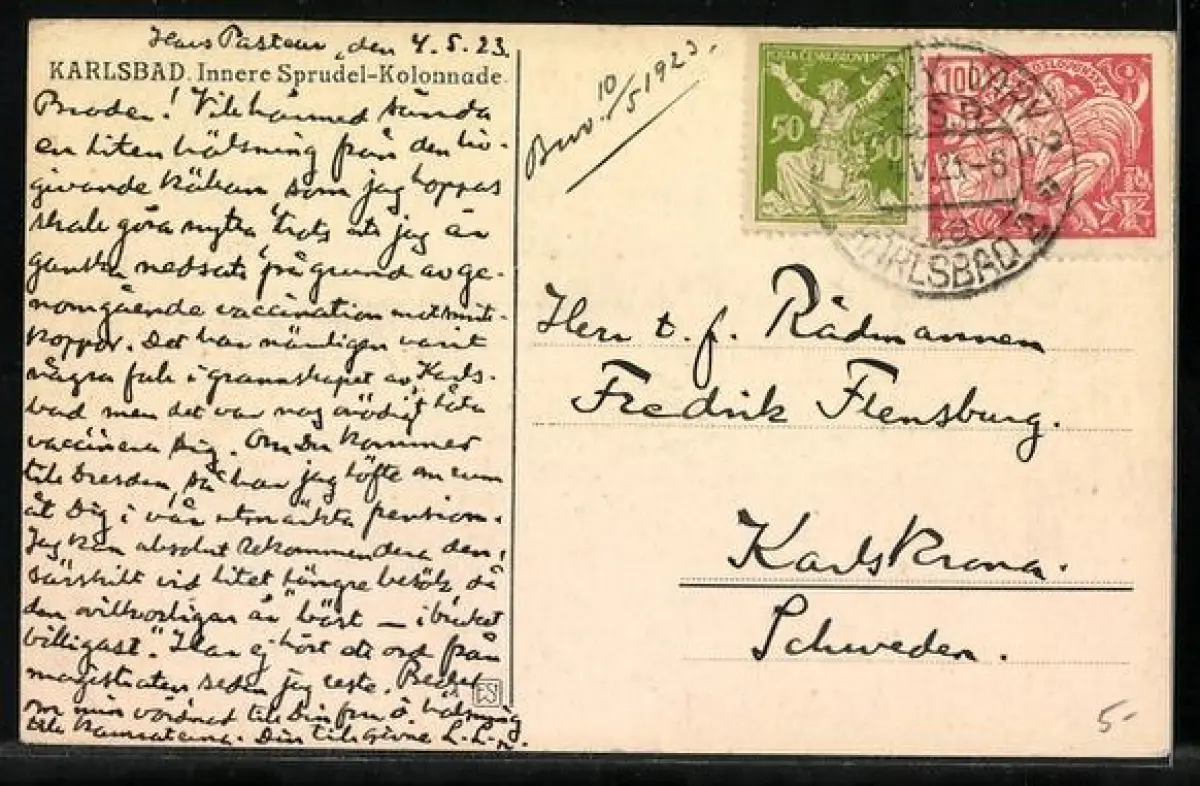 Haus Pasteur, den 4.5.23.
KARLSBAD. Innere Sprudel-Kolonnade.
Broder! Vill härmed sända
en liten hälsning från den liv-
givande källan som jag hoppas
skall göra nytta trots att jag är
ganska nedsatt på grund av ge-
nomgående vaccination mot smitt-
koppor. Det har nämligen varit
några fall i grannskapet av Karls-
bad men det var nog nödigt låta
vaccinera sig. Om Du kommer
till Dresden, så har jag löfte om rum
åt Dig i vår utmärkta pension.
Jag kan absolut rekommendera den,
särskilt vid litet längre besök, då
den ovillkorligen är "bäst — i brist
billigast". Har ej hört ett ord från
magistraten sedan jag reste. Beder
om min vördnad till Din fru o. hälsning
till kamraterna. Din tillgivne L. L-n.
Besv. 10/5 1923.
ČESKOSLOVENSKÁ
50 50
100
ČESKOSLOVENSKÁ
KARLOVY VARY 2
Č.S.P.
KARLSBAD 2
Herr t. f. Rådmannen
Fredrik Flensburg.
Karlskrona.
Schweden.
ES
5-